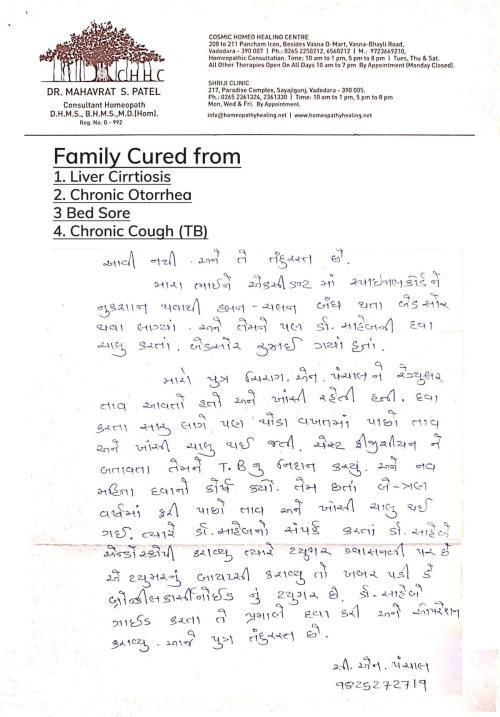 CHHC
DR. MAHAVRAT S. PATEL
Consultant Homeopath
D.H.M.S., B.H.M.S.,M.D.(Hom).
Reg. No. G - 992
COSMIC HOMEO HEALING CENTRE
208 to 211 Pancham Icon, Besides Vasna D-Mart, Vasna-Bhayli Road,
Vadodara - 390 007 | Ph.: 0265 2250212, 6560212 | M.: 9723669210,
Homeopathic Consultation. Time: 10 am to 1 pm, 5 pm to 8 pm | Tues, Thu & Sat.
All Other Therapies Open On All Days 10 am to 7 pm By Appointment (Monday Closed).
SHRIJI CLINIC
217, Paradise Complex, Sayajigunj, Vadodara - 390 005.
Ph.: 0265 2361324, 2361330 | Time: 10 am to 1 pm, 5 pm to 8 pm
Mon, Wed & Fri. By Appointment.
info@homeopathyhealing.net | www.homeopathyhealing.net
Family Cured from
1. Liver Cirrtiosis
2. Chronic Otorrhea
3 Bed Sore
4. Chronic Cough (TB)
આવી નથી. અને તે તંદુરસ્ત છે.
મારા ભાઈને એકસીડન્ટ માં સ્પાઈનલકોર્ડ ને
નુકશાન થવાથી હલન-ચલન બંધ થતા બેડસોર
થવા લાગ્યાં. અને તેમને પણ ડૉ. સાહેબની દવા
ચાલુ કરતાં. બેડસોર રુઝાઈ ગયાં હતાં.
મારો પુત્ર ચિરાગ. એન. પંચાલ ને રેગ્યુલર
તાવ આવતો હતો અને ખાંસી રહેતી હતી. દવા
કરતા સારુ લાગે પણ થોડા વખતમાં પાછો તાવ
અને ખાંસી ચાલુ થઈ જતી. ચેસ્ટ ફીજીશીયન ને
બતાવતા તેમને T.B નુ નિદાન કર્યું. અને નવ
મહિના દવાનો કોર્ષ કર્યો. તેમ છતાં બે-ત્રણ
વર્ષમાં ફરી પાછો તાવ અને ખાંસી ચાલુ થઈ
ગઈ. ત્યારે ડૉ. સાહેબનો સંપર્ક કરતાં ડૉ. સાહેબે
એન્ડોસ્કોપી કરાવ્યુ ત્યારે ટ્યુમર શ્વાસનળી પર છે
એ ટ્યુમરનું બાયપ્સી કરાવ્યુ તો ખબર પડી કે
બ્રોન્કીલકાર્સીનોઈડ નું ટ્યુમર છે. ડૉ. સાહેબે
ગાઈડ કરતા તે પ્રમાણે દવા કરી અને ઓપરેશન
કરાવ્યુ. આજે પુત્ર તંદુરસ્ત છે.
સી. એન. પંચાલ
9825272719